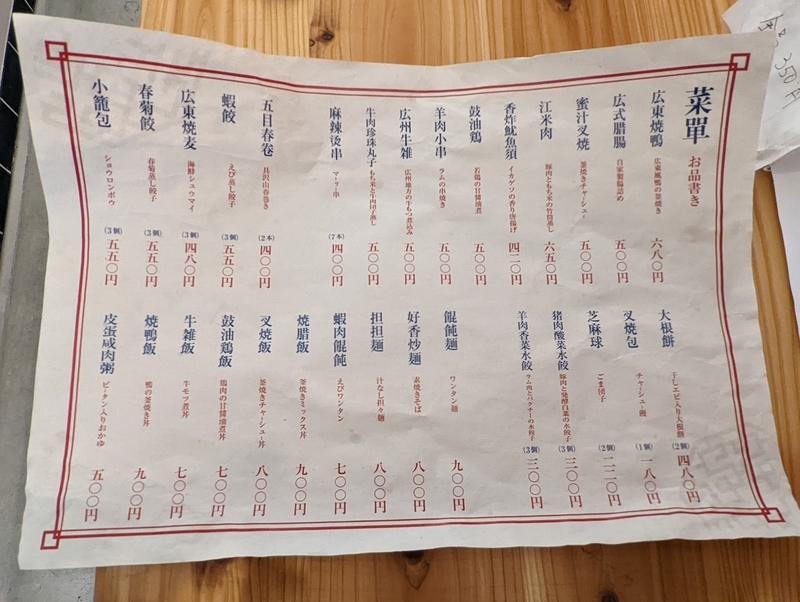 菜單 お品書き
広東焼鴨 広東風鴨の釜焼き 六八〇円
広式腊腸 自家製腸詰め 五〇〇円
蜜汁叉焼 釜焼きチャーシュー 五〇〇円
江米肉 豚肉ともち米の竹筒蒸し 六五〇円
香炸魷魚須 イカゲソの香り唐揚げ 四二〇円
鼓油鶏 若鶏の甘醤油煮 五〇〇円
羊肉小串 ラムの串焼き 五〇〇円
広州牛雑 広州地方の牛もつ煮込み 五〇〇円
牛肉珍珠丸子 もち米と牛肉団子蒸し 五〇〇円
麻辣烫串 マーラー串 (7本) 四〇〇円
五目春巻 具沢山春巻き (2本) 四〇〇円
蝦餃 えび蒸し餃子 (3個) 五五〇円
広東焼麦 海鮮シュウマイ (3個) 四八〇円
春菊餃 春菊蒸し餃子 (3個) 五五〇円
小籠包 ショウロンポウ (3個) 五五〇円
大根餅 干しエビ入り大根餅 (2個) 四八〇円
叉焼包 チャーシュー饅 (1個) 一八〇円
芝麻球 ごま団子 (2個) 二二〇円
猪肉酸菜水餃 豚肉と発酵白菜の水餃子 (3個) 三〇〇円
羊肉香菜水餃 ラム肉とパクチーの水餃子 (3個) 三〇〇円
餛飩麺 ワンタン麺 九〇〇円
好香炒麺 素焼きそば 八〇〇円
担担麺 汁なし担々麺 八〇〇円
蝦肉餛飩 えびワンタン 七〇〇円
焼腊飯 釜焼きミックス丼 九〇〇円
叉焼飯 釜焼きチャーシュー丼 八〇〇円
鼓油鶏飯 鶏肉の甘醤油煮丼 七〇〇円
牛雑飯 牛モツ煮丼 七〇〇円
焼鴨飯 鴨の釜焼き丼 九〇〇円
皮蛋咸肉粥 ピータン入りおかゆ 五〇〇円
350円